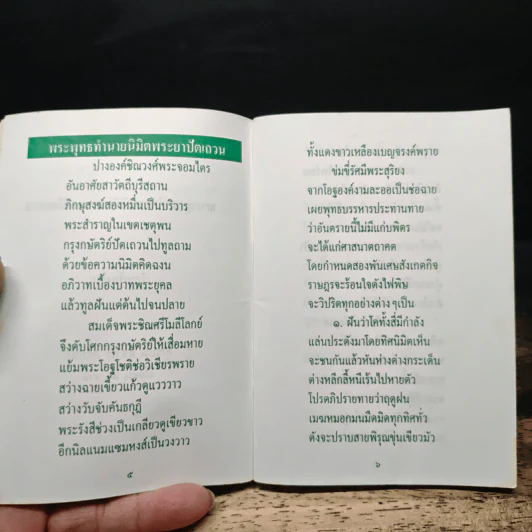 พระพุทธทำนายนิมิตพระยาปัตเถวน
ปางองค์ชิณวงศ์พระจอมไตร
อันอาศัยสาวัตถีบุรีสถาน
ภิกษุสงฆ์สองหมื่นเป็นบริวาร
พระสำราญในเขตเชตุพน
กรุงกษัตริย์ปัตเถวนไปทูลถาม
ด้วยข้อความนิมิตคิดฉงน
อภิวาทเบื้องบาทพระยุคล
แล้วทูลฝันแต่ต้นไปจนปลาย
สมเด็จพระชิณศรีโมลีโลกย์
จึงดับโศกกรุงกษัตริย์ให้เสื่อมหาย
แย้มพระโอฐโชติช่อวิเชียรพราย
สว่างฉายเขี้ยวแก้วดูแวววาว
สว่างวับจับคันธกุฎี
พระรังสีช่วงเป็นเกลียวดูเขียวขาว
อีกนิลแนมแซมหงส์เป็นวงวาว
๕
ทั้งแดงขาวเหลืองเบญจรงค์พราย
ข่มขี่รัศมีพระสุริยง
จากโอฐองค์งามละออเป็นช่อฉาย
เผยพุทธบรรหารประทานทาย
ว่าอันตรายนี้ไม่มีแก่บพิตร
จะได้แก่ศาสนาตถาคต
โดยกำหนดสองพันเศษสังเกตกิจ
ราษฎรจะร้อนใจดังไฟพิษ
จะวิปริตทุกอย่างต่าง ๆ เป็น
๑. ฝันว่าโคทั้งสี่มีกำลัง
แล่นประดังมาโดยทิศนิมิตเห็น
จะชนกันแล้วหันห่างต่างกระเด็น
ต่างหลีกลี้หนีเร้นไปหายตัว
โปรดภิปรายทายว่าฤดูฝน
เมฆหมอกมนมืดมิดทุกทิศทั่ว
ดังจะปราบสายพิรุณขุ่นเขียวมัว
๖